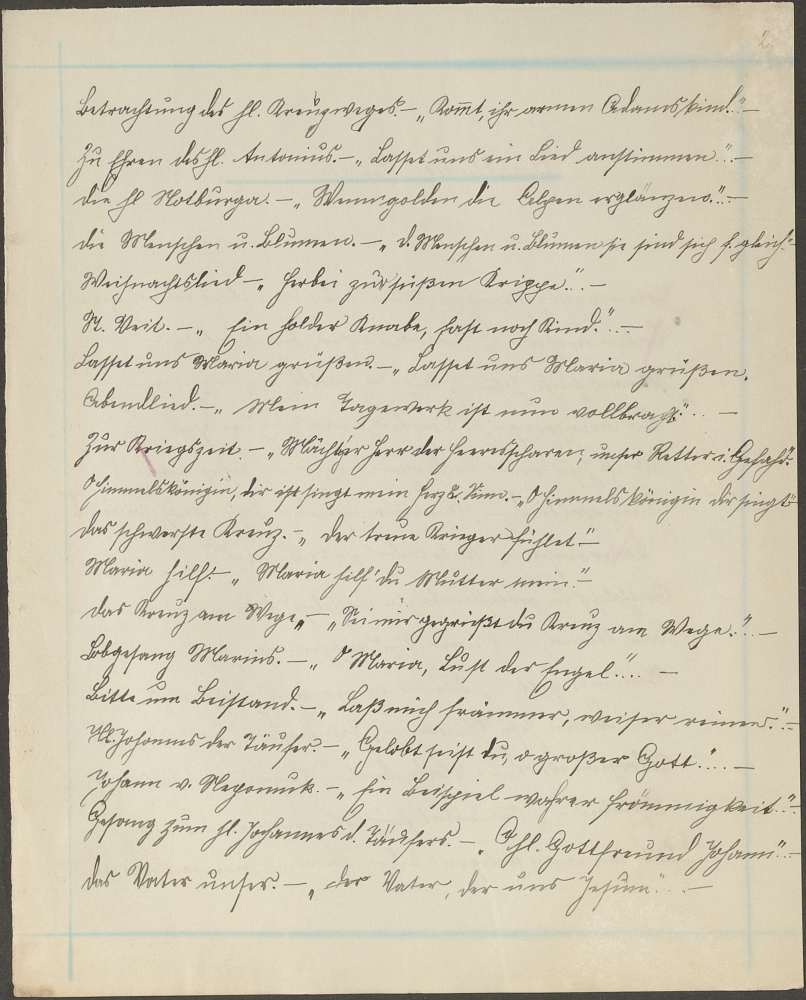 2
Betrachtung des hl. Kreuzweges. – „Kom̄t, ihr armen Adamskind." –
Zu Ehren des hl. Antonius. – „Lasset uns ein Lied anstimmen." –
Die hl Notburga. – „Wenn golden die Alpen erglänzen." –
Die Menschen u. Blumen. – „D. Menschen u. Blumen sie sind sich s. gleich." –
Weihnachtslied – „Herbei zur süßen Krippe." –
St. Veit. – „Ein holder Knabe, fast noch Kind." –
Lasset uns Maria grüßen. – „Lasset uns Maria grüßen.
Abendlied. – „Mein Tagewerk ist nun vollbracht." –
Zur Kriegszeit. – „Mächt'ger Herr der Heeresscharen, unser Retter i. Gefahr."
O Himmelskönigin, dir singt mein Herz u. Sinn. – „O Himmelskönigin dir singt"
Das schwerste Kreuz. – „Der treue Krieger fühlet" –
Maria hilf! – „Maria hilf' du Mutter mein." –
Das Kreuz am Wege„ – „Sei mir gegrüßt du Kreuz am Wege." –
Lobgesang Mariens. – „O Maria, Lust der Engel." –
Bitte um Beistand. – „Laß mich frömmer, weiser reinen." –
Hl. Johannes der Täufer. – „Gelobt seist du, o großer Gott." –
Johann v. Nepomuk. – „Ein Beispiel wahrer Frömmigkeit." –
Gesang zum hl. Johannes d. Täufers. – „O hl. Gottfreund Johann" –
Das Vater unser. – „Der Vater, der uns Jesum" –